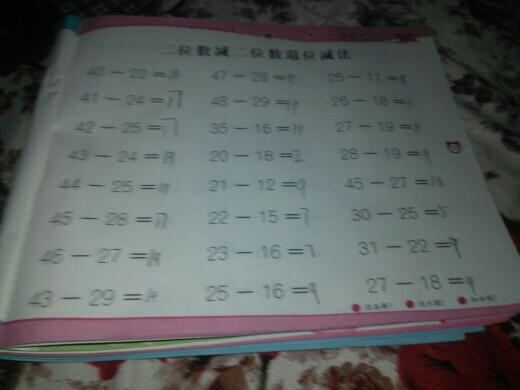 二位数减二位数退位减法
40－22＝18 47－28＝ 25－17＝8
41－24＝17 48－29＝19 26－18＝8
42－25＝17 35－16＝19 27－19＝8
43－24＝19 20－18＝2 28－19＝9
44－25＝ 21－12＝9 45－27＝18
45－28＝17 22－15＝7 30－25＝5
46－27＝19 23－16＝7 31－22＝9
43－29＝14 25－16＝9 27－18＝9